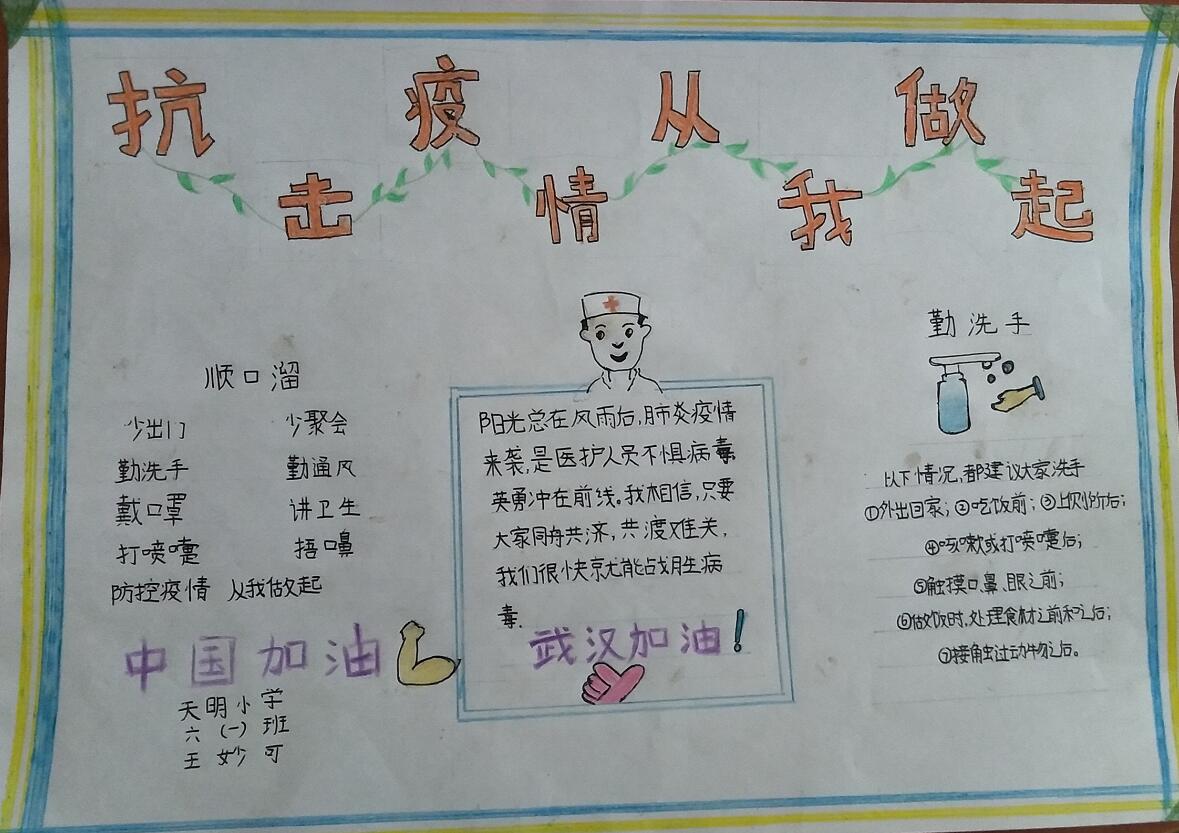 抗击疫情从我做起
顺口溜
少出门 少聚会
勤洗手 勤通风
戴口罩 讲卫生
打喷嚏 捂口鼻
防控疫情 从我做起
中国加油
天明小学
六（一）班
王妙可
阳光总在风雨后,肺炎疫情
来袭,是医护人员不惧病毒
英勇冲在前线。我相信,只要
大家同舟共济,共渡难关,
我们很快就能战胜生病
毒.
武汉加油!
勤洗手
以下情况,都建议大家洗手
①外出回家；②吃饭前；③上厕所后；
④咳嗽或打喷嚏后；
⑤触摸口、鼻、眼之前；
⑥做饭时,处理食材之前和之后；
⑦接触过动物之后。